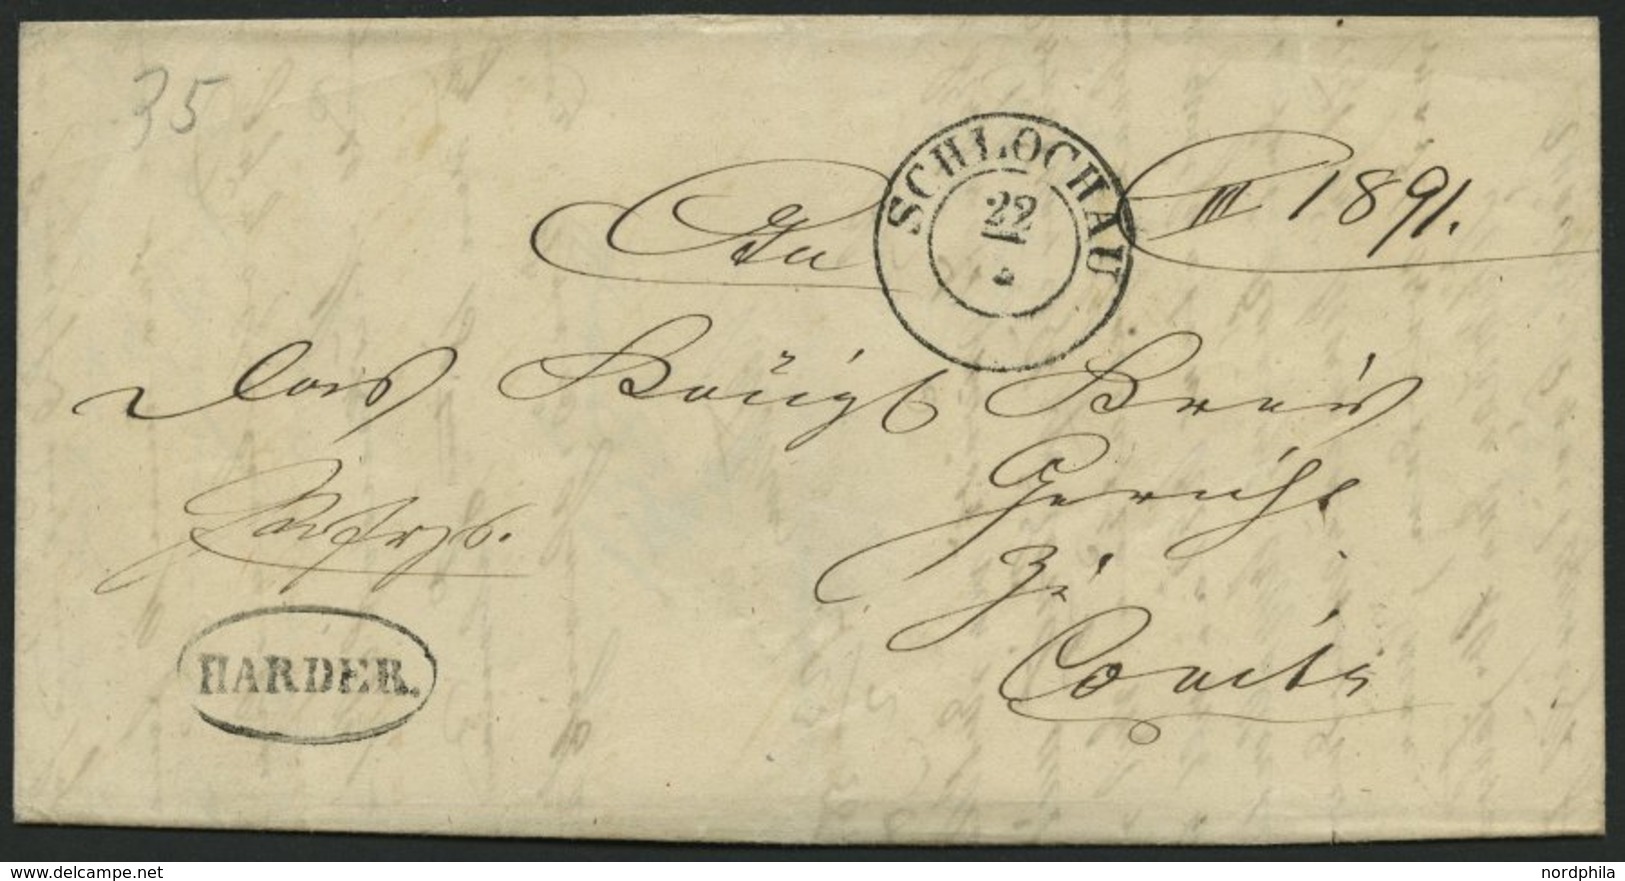 35
SCHLOCHAU
22
An
III 1891.
das Königl Kreis
Gericht
zu
Conitz
HARDER.
delcampe.net
nordphila